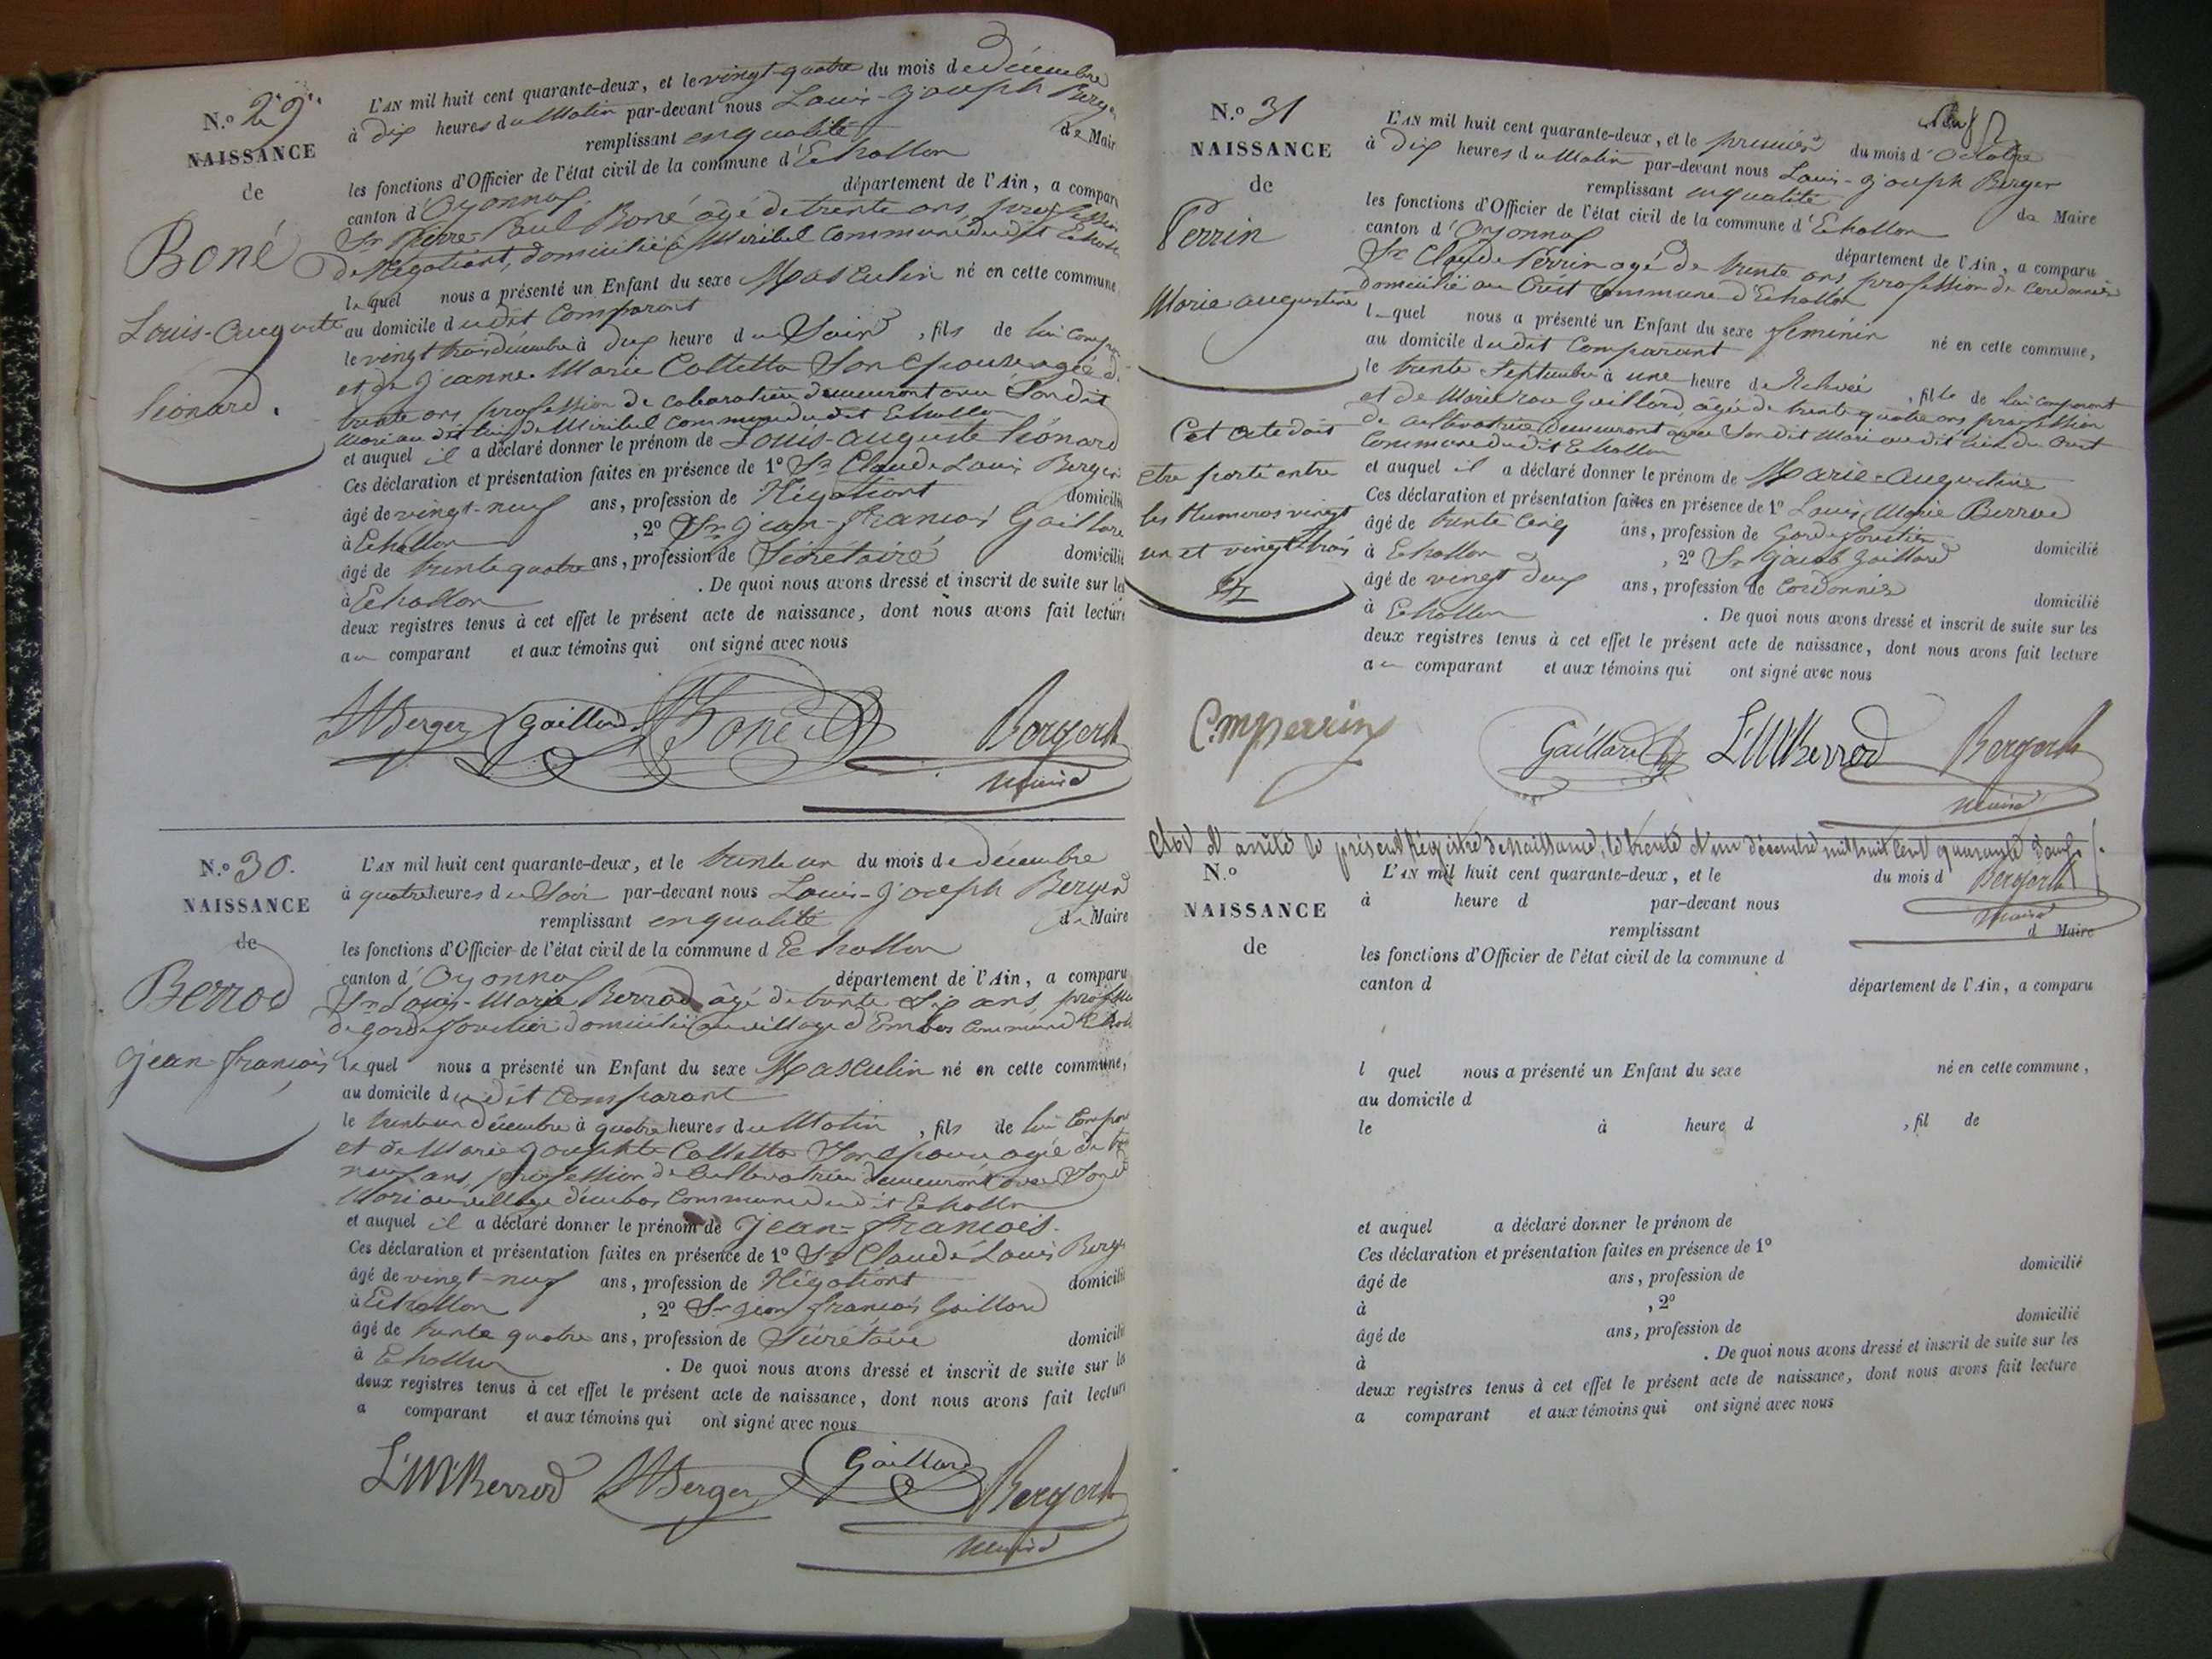 N.º 29
NAISSANCE
de
Boné
Louis-Auguste
Léonard.
L'AN mil huit cent quarante-deux, et le vingt-quatre du mois de décembre
à dix heures du Matin par-devant nous Louis-Joseph Berger
remplissant en qualité de Mair
les fonctions d'Officier de l'état civil de la commune d'Echallon
canton d'Oyonnax département de l'Ain, a compar
Sr Pierre-Paul Boné âgé de trente ans, profession
de Négotiant, domicilié à Miribel Commune du dit Echall
lequel nous a présenté un Enfant du sexe Masculin né en cette commune
au domicile du dit Comparant
le vingt trois décembre à dix heure du Soir, fils de lui Compar
et de Jeanne-Marie Colletta Son Epouse agée de
trente ans profession de demeurant avec Son dit
Mari au dit lieu de Miribel Commune du dit Echallon
et auquel il a déclaré donner le prénom de Louis-Auguste Léonard
Ces déclaration et présentation faites en présence de 1º Sr Claude Louis Berger
âgé de vingt-neuf ans, profession de Négotiant domicilié
à Echallon , 2º Sr Jean-François Gaillard
âgé de trente quatre ans, profession de Sécrétaire domicilié
à Echallon . De quoi nous avons dressé et inscrit de suite sur les
deux registres tenus à cet effet le présent acte de naissance, dont nous avons fait lecture
au comparant et aux témoins qui ont signé avec nous
Berger Gaillard Boné Berger
Maire
N.º 30.
NAISSANCE
de
Berrod
Jean-François
L'AN mil huit cent quarante-deux, et le trente un du mois de décembre
à quatre heures du Soir par-devant nous Louis-Joseph Berger
remplissant en qualité de Maire
les fonctions d'Officier de l'état civil de la commune d Echallon
canton d'Oyonnax département de l'Ain, a comparu
Sr Louis-Marie Berrod âgé de trente Six ans, profess
de garde forestier domicilié au village d'Embos Commune d'Echall
lequel nous a présenté un Enfant du sexe Masculin né en cette commune,
au domicile du dit Comparant
le trente un décembre à quatre heures du Matin , fils de lui Compar
et de Marie Josephte Colletta Son epouse agée de
neuf ans, profession de Cultivatrice demeurant avec Son d
Mari au village d'embos Commune du dit Echallon
et auquel il a déclaré donner le prénom de Jean-François.
Ces déclaration et présentation faites en présence de 1º Sr Claude Louis Berge
âgé de vingt-neuf ans, profession de Négotiant domicilié
à Echallon , 2º Sr Jean François Gaillard
âgé de trente quatre ans, profession de Sécrétaire domicilié
à Echallon . De quoi nous avons dressé et inscrit de suite sur les
deux registres tenus à cet effet le présent acte de naissance, dont nous avons fait lecture
a comparant et aux témoins qui ont signé avec nous
L. M. Berrod Berger Gaillard Berger
Maire
N.º 31
NAISSANCE
de
Perrin
Marie augustine
Cet acte doit
etre porté entre
les Numeros vingt
un et vingt trois
L'AN mil huit cent quarante-deux, et le premier du mois d'Octobre
à Dix heures du Matin par-devant nous Louis-Joseph Berger
remplissant en qualité de Maire
les fonctions d'Officier de l'état civil de la commune d'Echallon
canton d'Oyonnax département de l'Ain, a comparu
Sr Claude Perrin agé de trente ans, profession de Cordonnier
domicilié au Crest Commune d'Echallon
l quel nous a présenté un Enfant du sexe feminin né en cette commune,
au domicile du dit Comparant
le trente Septembre à une heure de Relevée , fille de lui Comparant
et de Marie Gaillard, âgée de trente quatre ans, profession
de cultivatrice demeurant avec Son dit Mari au dit lieu du Crest
Commune du dit Echallon
et auquel il a déclaré donner le prénom de Marie-Augustine
Ces déclaration et présentation faites en présence de 1º Louis Marie Berrod
âgé de trente Cinq ans, profession de Garde forestier domicilié
à Echallon , 2º Sr Jacob Gaillard
âgé de vingt deux ans, profession de Cordonnier domicilié
à Echallon . De quoi nous avons dressé et inscrit de suite sur les
deux registres tenus à cet effet le présent acte de naissance, dont nous avons fait lecture
au comparant et aux témoins qui ont signé avec nous
C. m perrin Gaillard L. M. Berrod Berger
Maire
Clos et arrêté le présent Régistre de Naissance, le trente et un décembre mil huit Cent quarante deux.
Berger
Maire
N.º
NAISSANCE
de
L'AN mil huit cent quarante-deux, et le du mois d
à heure d par-devant nous
remplissant d Maire
les fonctions d'Officier de l'état civil de la commune d
canton d département de l'Ain, a comparu
l quel nous a présenté un Enfant du sexe né en cette commune,
au domicile d
le à heure d , fil de
et auquel a déclaré donner le prénom de
Ces déclaration et présentation faites en présence de 1º
âgé de ans, profession de domicilié
à , 2º
âgé de ans, profession de domicilié
à . De quoi nous avons dressé et inscrit de suite sur les
deux registres tenus à cet effet le présent acte de naissance, dont nous avons fait lecture
a comparant et aux témoins qui ont signé avec nous